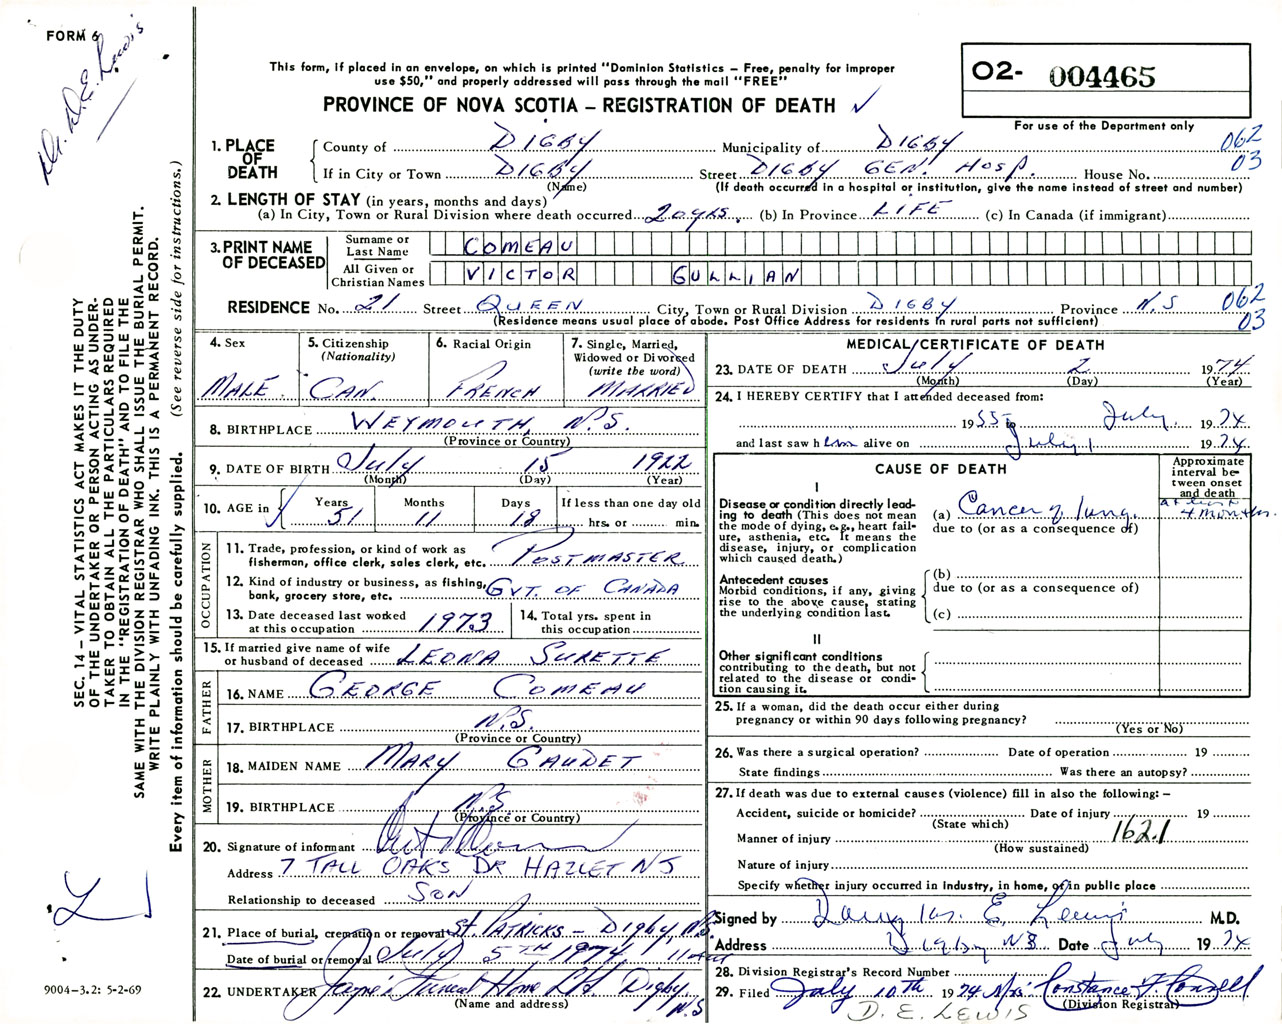 FORM 6
Dr. D.E. Lewis
This form, if placed in an envelope, on which is printed "Dominion Statistics – Free, penalty for improper
use $50," and properly addressed will pass through the mail "FREE"
PROVINCE OF NOVA SCOTIA – REGISTRATION OF DEATH ✓
O2- 004465
For use of the Department only
1. PLACE OF DEATH
County of DIGBY Municipality of DIGBY 062
If in City or Town DIGBY Street DIGBY GEN. HOSP. House No. 03
(Name) (If death occurred in a hospital or institution, give the name instead of street and number)
2. LENGTH OF STAY (in years, months and days)
(a) In City, Town or Rural Division where death occurred 20 yrs. (b) In Province LIFE (c) In Canada (if immigrant)
3. PRINT NAME OF DECEASED
Surname or Last Name COMEAU
All Given or Christian Names VICTOR GULLIAN
RESIDENCE No. 21 Street QUEEN City, Town or Rural Division DIGBY Province N.S 062
(Residence means usual place of abode. Post Office Address for residents in rural parts not sufficient) 03
4. Sex
MALE
5. Citizenship
(Nationality)
CAN.
6. Racial Origin
FRENCH
7. Single, Married,
Widowed or Divorced
(write the word)
MARRIED
8. BIRTHPLACE WEYMOUTH, N.S.
(Province or Country)
9. DATE OF BIRTH July 15 1922
(Month) (Day) (Year)
10. AGE in
Years Months Days If less than one day old
51 11 18 hrs. or min.
OCCUPATION
11. Trade, profession, or kind of work as
fisherman, office clerk, sales clerk, etc. POSTMASTER
12. Kind of industry or business, as fishing,
bank, grocery store, etc. GVT. OF CANADA
13. Date deceased last worked
at this occupation 1973
14. Total yrs. spent in
this occupation
15. If married give name of wife
or husband of deceased LEONA SURETTE
FATHER
16. NAME GEORGE COMEAU
17. BIRTHPLACE N.S.
(Province or Country)
MOTHER
18. MAIDEN NAME MARY GAUDET
19. BIRTHPLACE N.S
(Province or Country)
20. Signature of informant
Address 7 TALL OAKS DR HAZLET NJ
Relationship to deceased SON
21. Place of burial, cremation or removal St. PATRICKS – DIGBY, N.S.
Date of burial or removal July 5TH 1974 11 AM
22. UNDERTAKER Funeral Home Ltd. Digby N.S
(Name and address)
MEDICAL CERTIFICATE OF DEATH
23. DATE OF DEATH July 2 1974
(Month) (Day) (Year)
24. I HEREBY CERTIFY that I attended deceased from:
1955 to July 1974
and last saw him alive on July 1 1974
CAUSE OF DEATH
Approximate
interval be-
tween onset
and death
I
Disease or condition directly lead-
ing to death (This does not mean
the mode of dying, e.g., heart fail-
ure, asthenia, etc. It means the
disease, injury, or complication
which caused death.)
(a) Cancer of lung. at least 4 months.
due to (or as a consequence of)
Antecedent causes
Morbid conditions, if any, giving
rise to the above cause, stating
the underlying condition last.
(b)
due to (or as a consequence of)
(c)
II
Other significant conditions
contributing to the death, but not
related to the disease or condi-
tion causing it.
25. If a woman, did the death occur either during
pregnancy or within 90 days following pregnancy?
(Yes or No)
26. Was there a surgical operation? Date of operation 19
State findings Was there an autopsy?
27. If death was due to external causes (violence) fill in also the following: –
Accident, suicide or homicide? Date of injury 19
(State which)
Manner of injury 162.1
(How sustained)
Nature of injury
Specify whether injury occurred in Industry, in home, or in public place
Signed by Douglas E. Lewis M.D.
Address Digby NS Date July 1974
28. Division Registrar's Record Number
29. Filed July 10th 1974 Mrs. Constance F. Connell
(Division Registrar)
D. E. LEWIS
SEC. 14 – VITAL STATISTICS ACT MAKES IT THE DUTY
OF THE UNDERTAKER OR PERSON ACTING AS UNDER-
TAKER TO OBTAIN ALL THE PARTICULARS REQUIRED
IN THE "REGISTRATION OF DEATH" AND TO FILE THE
SAME WITH THE DIVISION REGISTRAR WHO SHALL ISSUE THE BURIAL PERMIT.
WRITE PLAINLY WITH UNFADING INK. THIS IS A PERMANENT RECORD.
Every item of information should be carefully supplied. (See reverse side for instructions.)
9004-3.2: 5-2-69